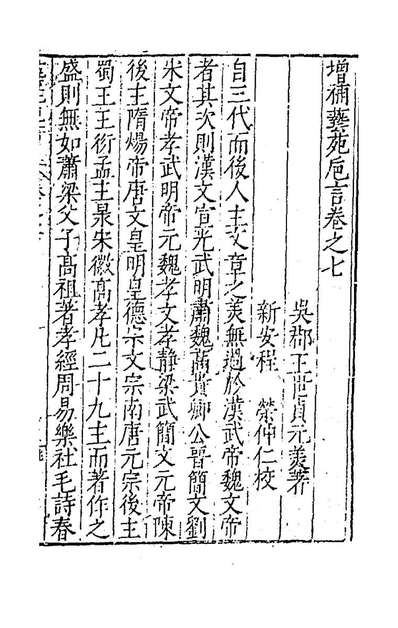 增補藝苑卮言卷之七
吳郡王世貞元美著
新安程 榮仲仁校
自三代而後人主文章之美無過於漢武帝魏文帝
者其次則漢文宣光武明肅魏高貴鄉公晉簡文劉
宋文帝孝武明帝元魏孝文孝靜梁武簡文元帝陳
後主隋煬帝唐文皇明皇德宗文宗南唐元宗後主
蜀王王衍孟主昶宋徽高孝凡二十九主而著作之
盛則無如蕭梁父子高祖著孝經周易樂社毛詩春